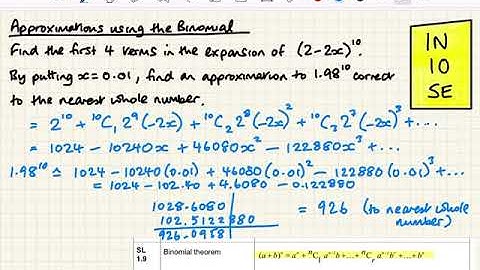 Approximations using the Binomial
Find the first 4 terms in the expansion of (2-2x)¹⁰.
By putting x=0.01, find an approximation to 1.98¹⁰ correct
to the nearest whole number.
IN
10
SE
= 2¹⁰ + ¹⁰C₁ 2⁹(-2x) + ¹⁰C₂ 2⁸(-2x)² + ¹⁰C₃ 2⁷(-2x)³ + ...
= 1024 - 10240x + 46080x² - 122880x³ + ...
1.98¹⁰ ≏ 1024 - 10240(0.01) + 46080(0.01)² - 122880(0.01)³ + ...
= 1024 - 102.40 + 4.6080 - 0.122880
1028.6080
102.5122880
926.09581
= 926 (to nearest whole number)
SL
1.9
Binomial theorem
(a+b)ⁿ = aⁿ + ⁿC₁ aⁿ⁻¹b + ... + ⁿCᵣ aⁿ⁻ʳbʳ + ... + bⁿ